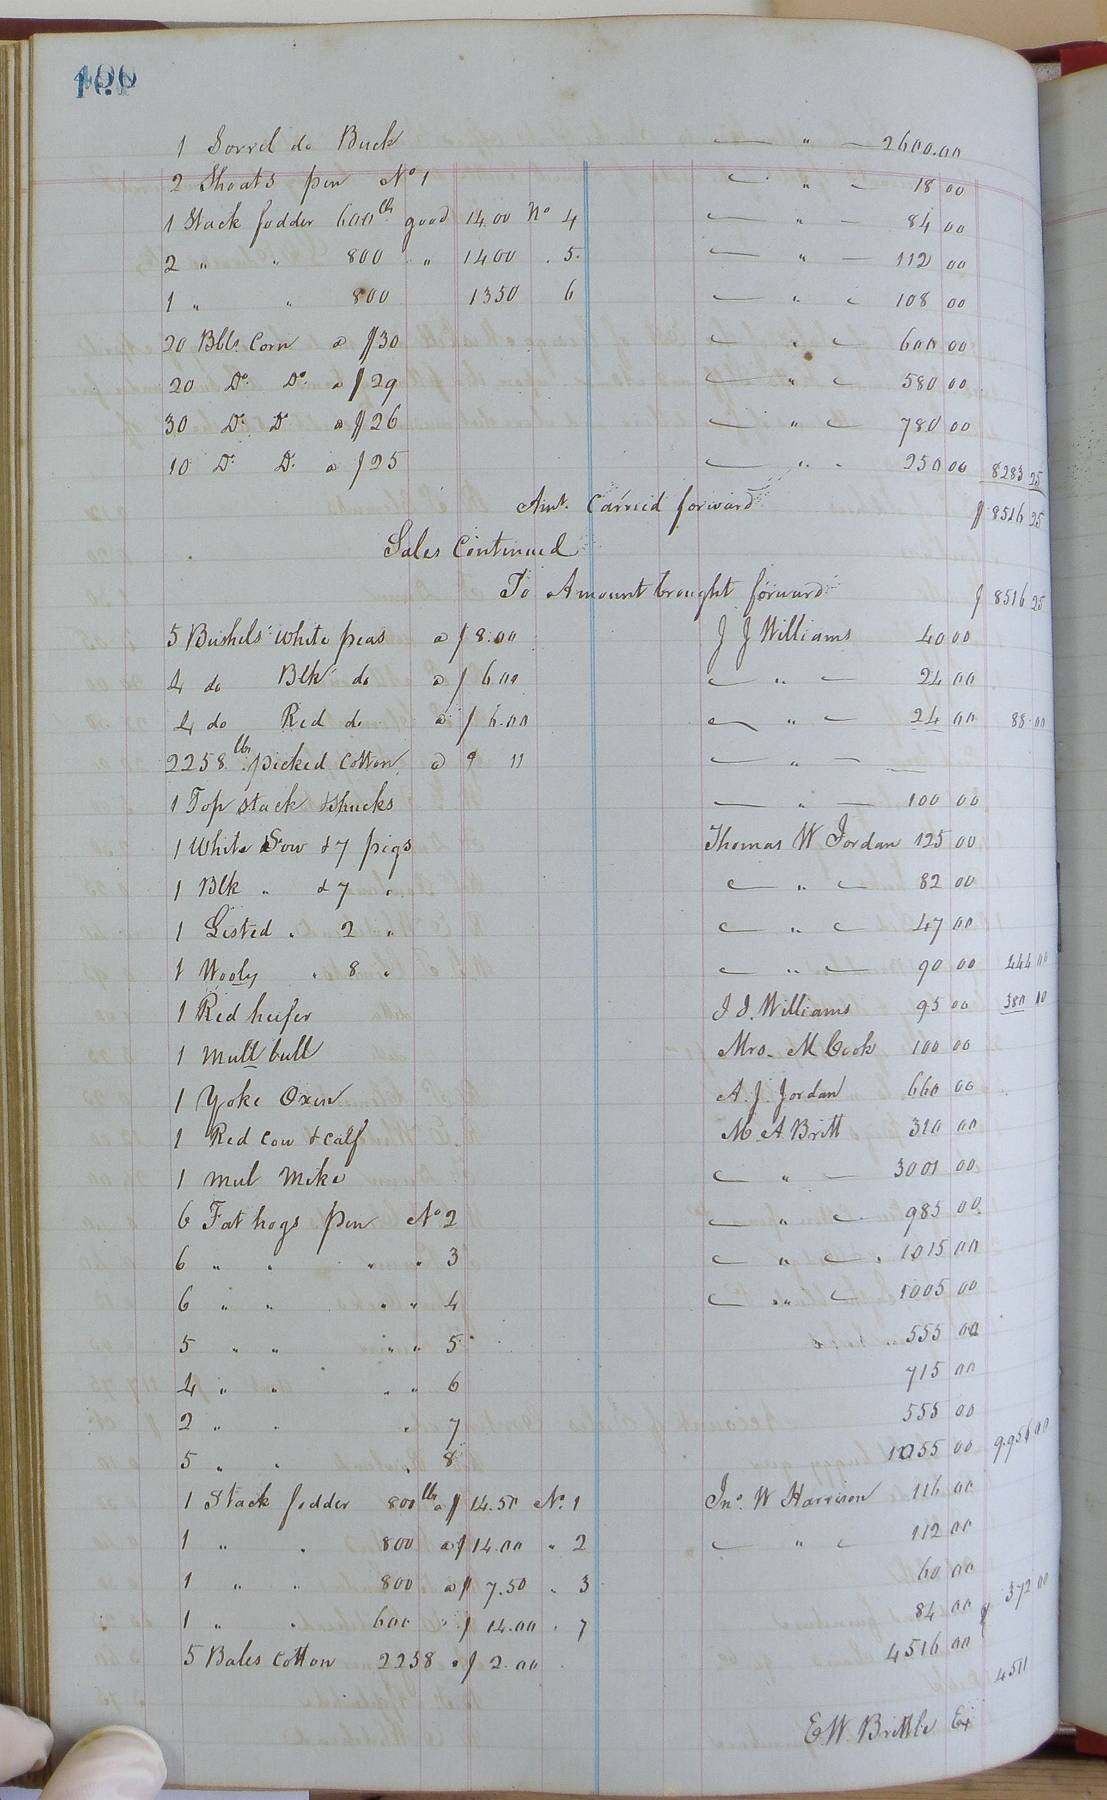 1 Sorrel do Buck — " — 2600.00
2 Shoats pen No 1 — " — 18 00
1 Stack fodder 600 lb good 14.00 No 4 — " — 84 00
2 " " 800 " 1400 . 5. — " — 112 00
1 " " 800 1350 6 — " — 108 00
20 Bbls. Corn a $30 — " — 600 00
20 Do. Do. a $29 — " — 580 00
30 Do. Do a $26 — " — 780 00
10 Do. Do. a $25 — " — 250 00 8283 25
Amt. Carried forward $ 8516 25
Sales Continued
To Amount brought forward $ 8516 25
5 Bushels White peas a $ 8.00 J J Williams 40 00
4 do Blk do a $ 6 00 — " — 24 00
4 do Red do a $ 6.00 — " — 24 00 88.00
2258 lbs. picked Cotton a 9 11 — " — —
1 Top stack & shucks — " — 100 00
1 White Sow & 7 pigs Thomas W Jordan 125 00
1 Blk " & 7 " — " — 82 00
1 Listed " 2 " — " — 47 00
1 Wooly " 8 " — " — 90 00 444 00
1 Red heifer J J. Williams 95 00 380 10
1 Mull bull Mrs. M Cook 100 00
1 Yoke Oxen A. J. Jordan 660 00
1 Red Cow & calf M A Britt 310 00
1 Mul Mike — " — 3001 00
6 Fat hogs pen No 2 — " — 985 00.
6 " " " " 3 — " — 1015 00
6 " " " " 4 — " — 1005 00
5 " " " " 5 555 00
4 " " " " 6 715 00
2 " " " 7 555 00
5 " " " 8 1055 00 9956 00
1 Stack fodder 800 lbs a $ 14.50 No. 1 Jno. W Harrison 116 00
1 " " 800 a $ 14.00 " 2 — " — 112 00
1 " " 800 a $ 7.50 " 3 60 00
1 " " 600 " $ 14.00 " 7 84 00 $ 372 00
5 Bales Cotton 2258 a $ 2.00 4516 00 4511
E. W. Brittle Ex